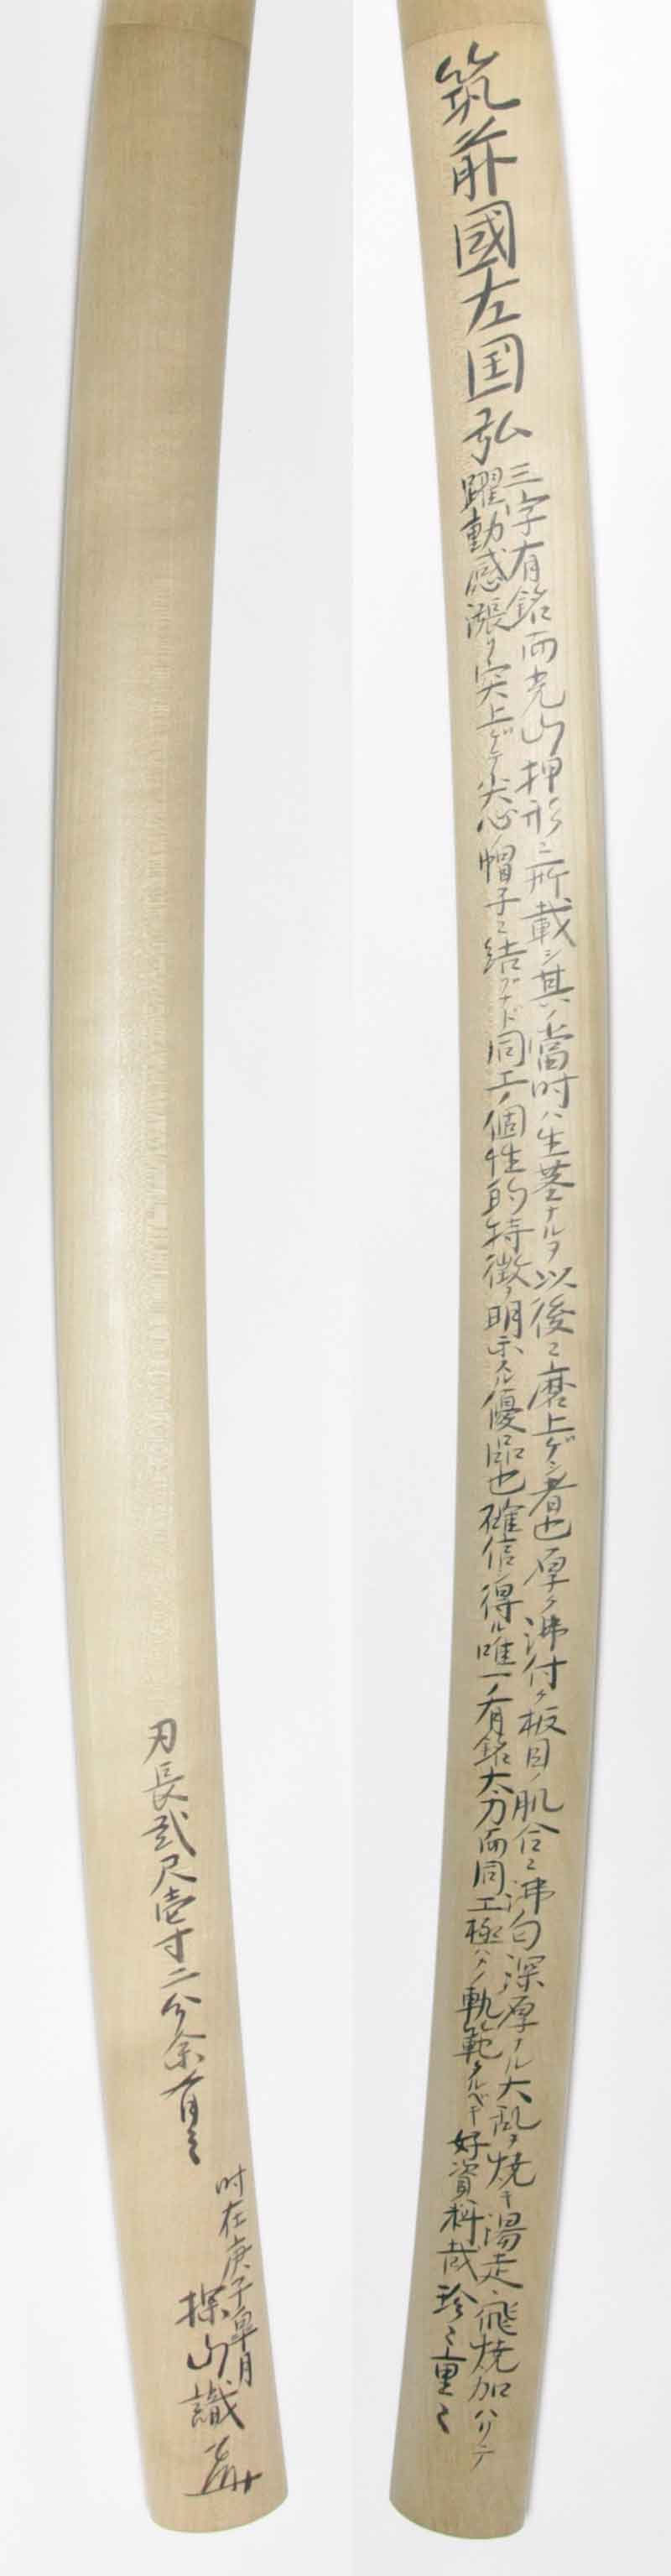 筑前國左国弘
三字有銘而光山押形ニ所載シ其ノ當時ハ生茎ナルヲ以後ニ磨上ゲシ者也厚ク沸付ク板目ノ肌合ニ沸匂深厚ナル大乱ヲ焼キ湯走飛焼加ハリテ
躍動感漲リ突上ゲテ尖心帽子ニ結ブナド同工ノ個性的特徴ヲ明示スル優品也確信得ル唯一ノ有銘大刀而同工極ハメノ軌範タルベキ好資料哉珍々重々
刃長弐尺壱寸二分余有之
时在庚子皐月
探山識